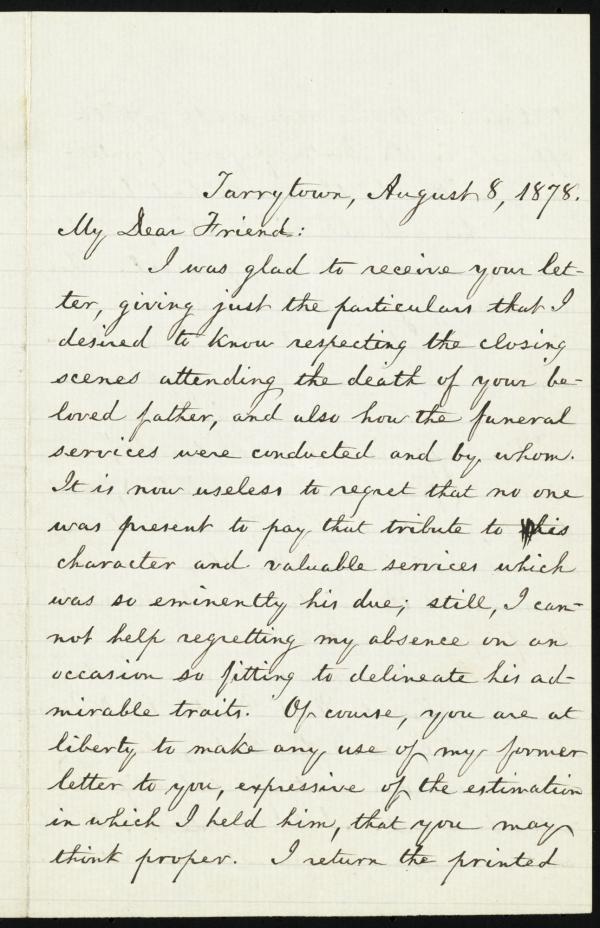 Tarrytown, August 8, 1878.
My Dear Friend:
I was glad to receive your let-
ter, giving just the particulars that I
desired to know respecting the closing
scenes attending the death of your be-
loved father, and also how the funeral
services were conducted and by whom.
It is now useless to regret that no one
was present to pay that tribute to his
character and valuable services which
was so eminently his due; still, I can-
not help regretting my absence on an
occasion so fitting to delineate his ad-
mirable traits. Of course, you are at
liberty to make any use of my former
letter to you, expressive of the estimation
in which I held him, that you may
think proper. I return the printed